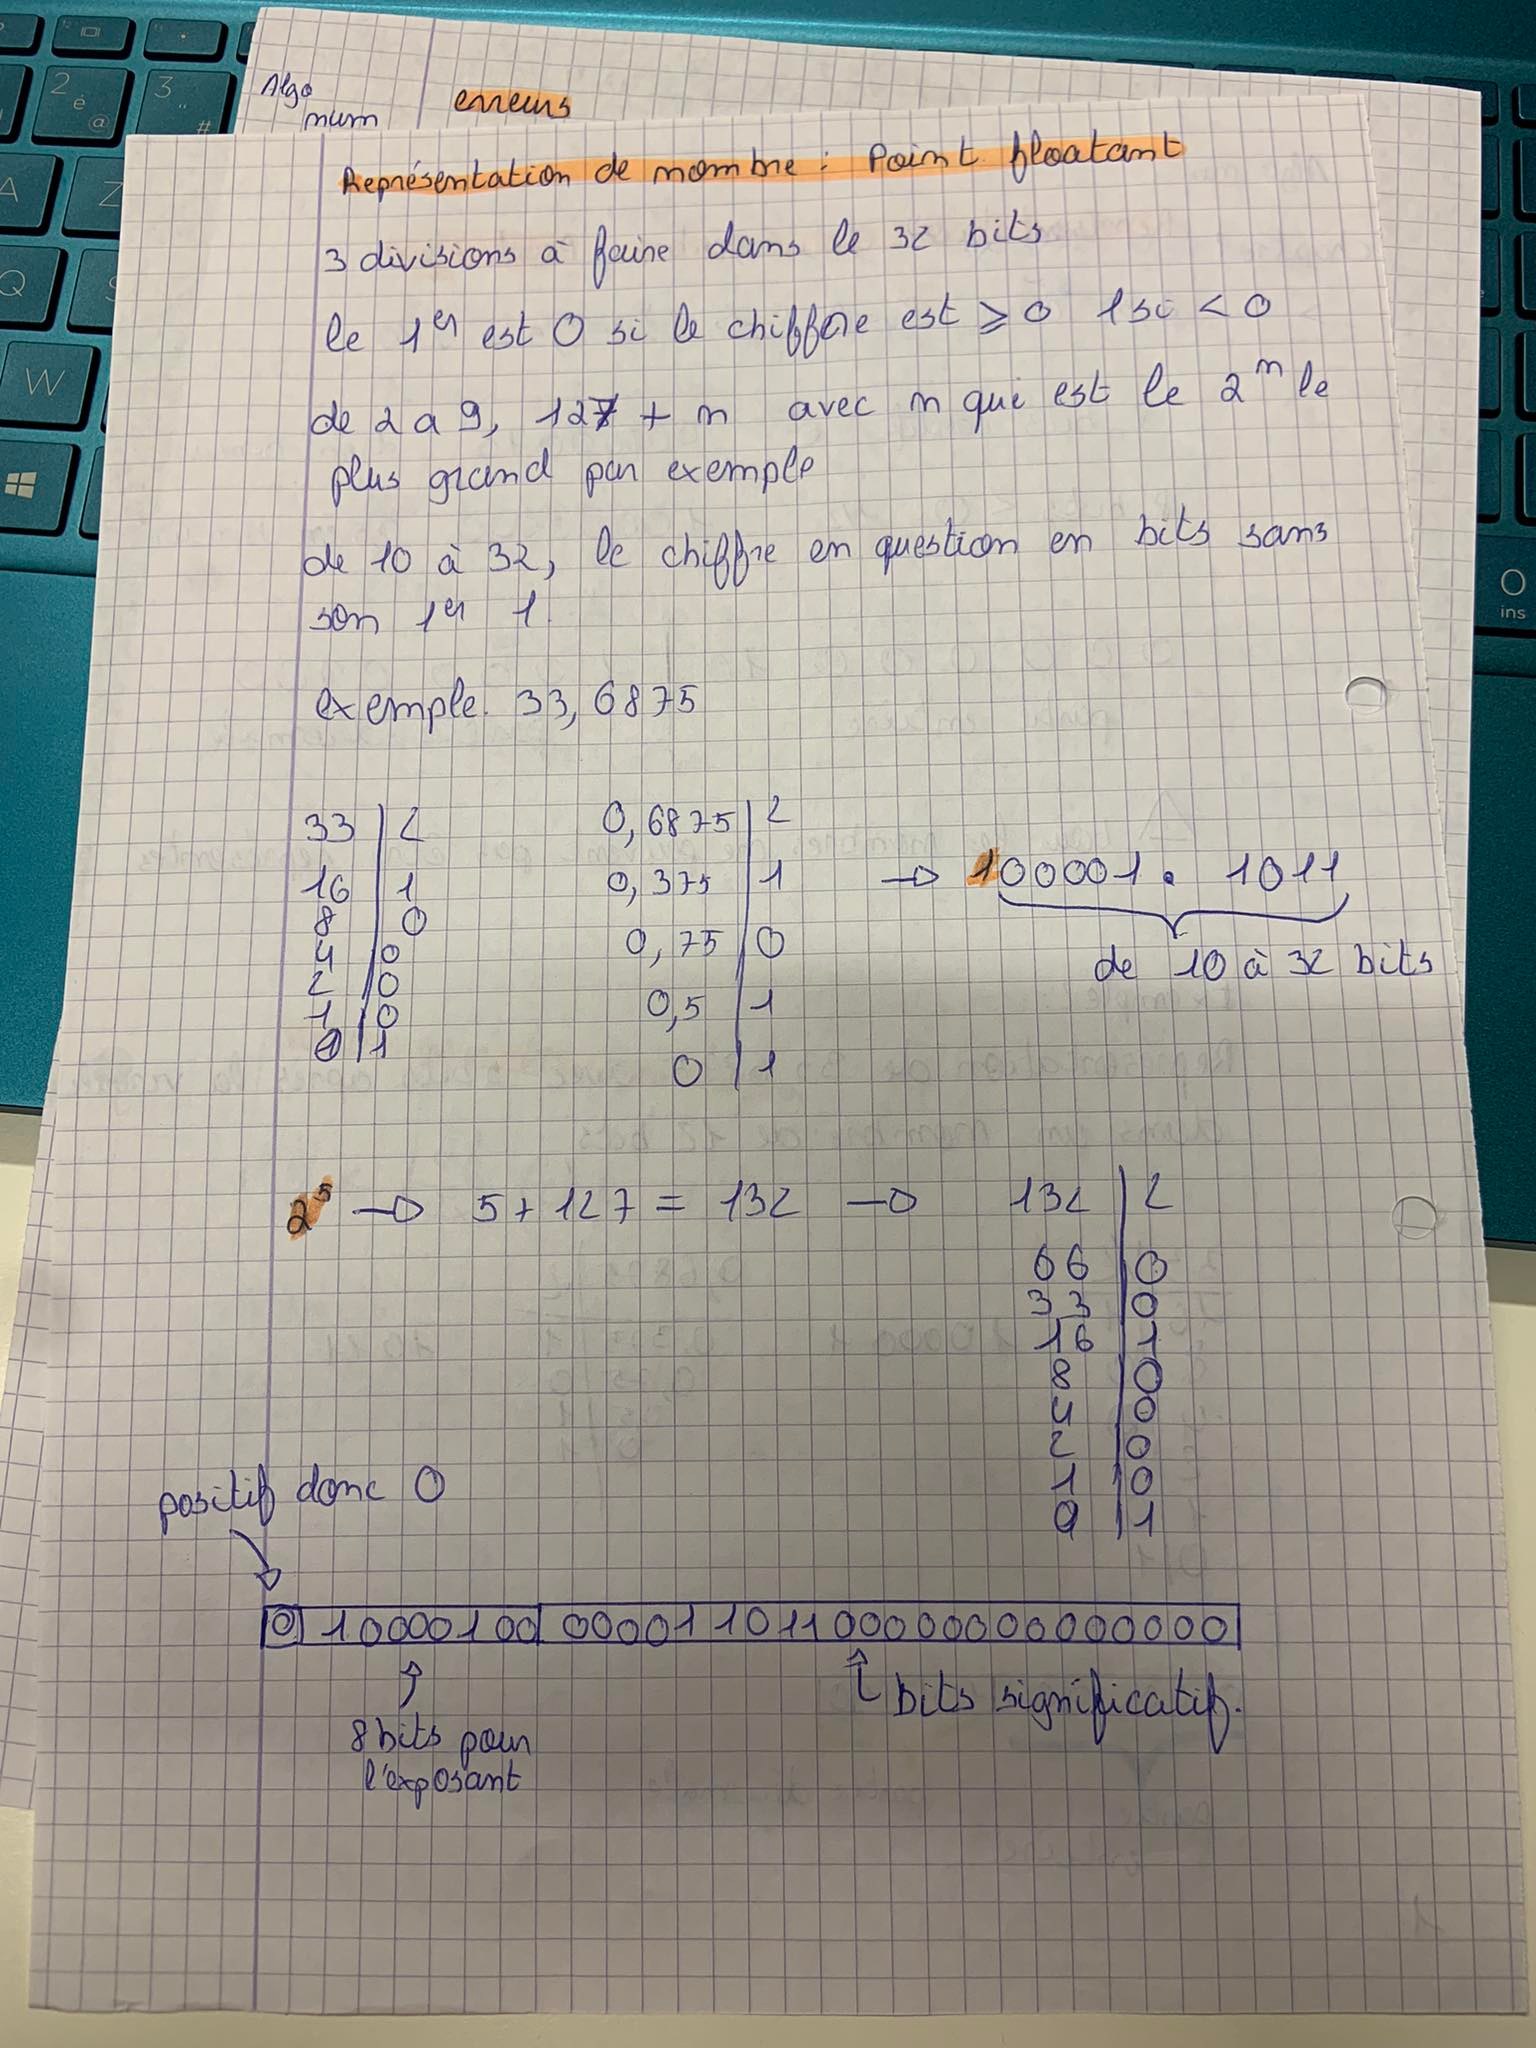 Algo
num
erreurs
Représentation de nombre : Point floatant
3 divisions à faire dans le 32 bits
le 1er est 0 si le chiffre est ≥ 0 1 si < 0
de 2 a 9, 127 + n avec n qui est le 2^n le
plus grand par exemple
de 10 à 32, le chiffre en question en bits sans
son 1er 1.
exemple. 33,6875
33 | 2 0,6875 | 2
16 | 1 0,375 | 1 → 100001. 1011
8 | 0
4 | 0 0,75 | 0 de 10 à 32 bits
2 | 0
1 | 0 0,5 | 1
0 | 1 0 | 1
2^5 → 5 + 127 = 132 → 132 | 2
66 | 0
33 | 0
16 | 1
8 | 0
4 | 0
2 | 0
1 | 0
0 | 1
positif donc 0
0 10000100 00001101100000000000000
bits significatif.
8 bits pour
l'exposant
2
é
@
3
"
#
A
Z
Q
S
W
0
ins